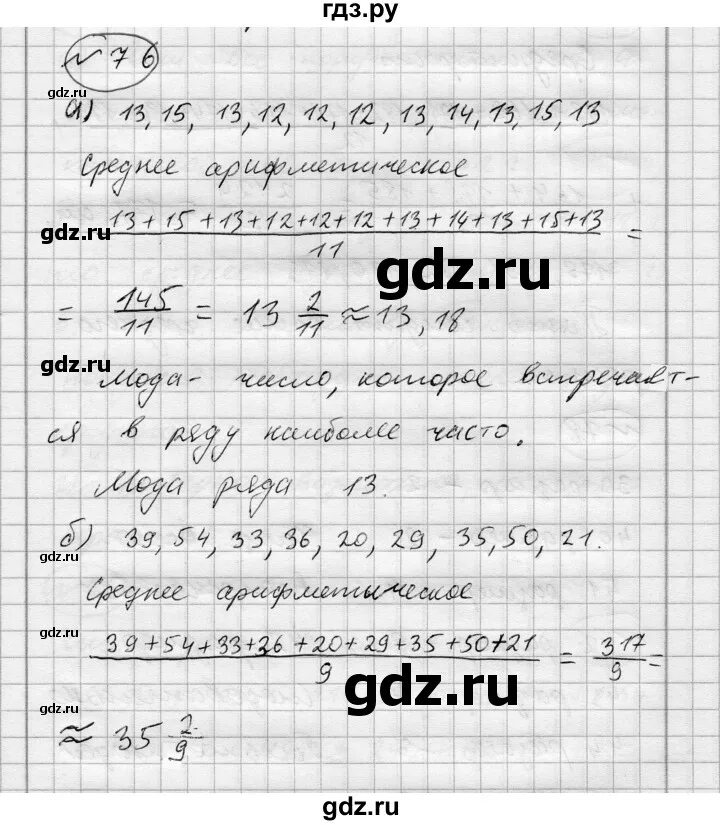 гдз.ру
№ 76
gdz.ru
а) 13, 15, 13, 12, 12, 12, 13, 14, 13, 15, 13
Среднее арифметическое
gdz.ru
13 + 15 + 13 + 12 + 12 + 12 + 13 + 14 + 13 + 15 + 13 / 11 =
gdz.ru
= 145/11 = 13 2/11 ≈ 13,18
gdz.ru
Мода - число, которое встречает-
ся в ряду наиболее часто.
Мода ряда 13.
б) 39, 54, 33, 36, 20, 29, 35, 50, 21.
gdz.ru
Среднее арифметическое
gdz.ru
39 + 54 + 33 + 36 + 20 + 29 + 35 + 50 + 21 / 9 = 317/9 =
gdz.ru
gdz.ru
≈ 35 2/9
gdz.ru